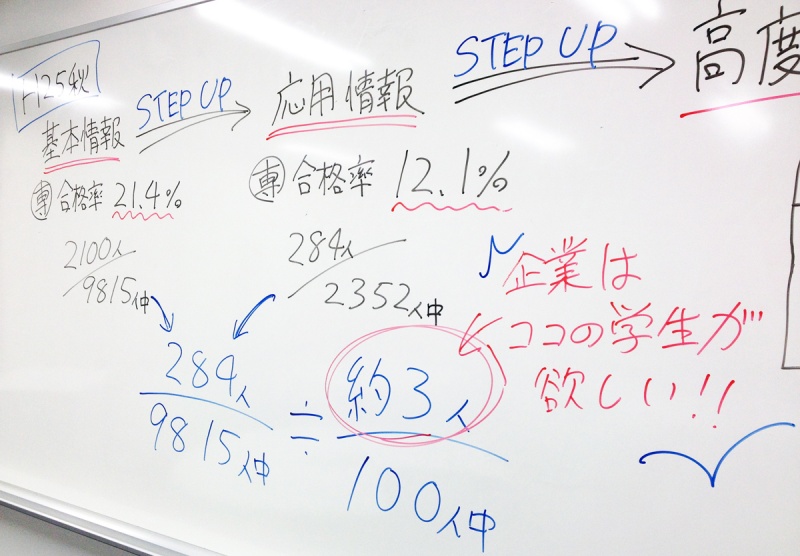 H25秋
基本情報
STEP UP
応用情報
STEP UP
高度
専 合格率 21.4%
2100人
9815人中
専 合格率 12.1%
284人
2352人中
284人
9815人中
≒
約3人
100人中
企業は
ココの学生が
欲しい!!